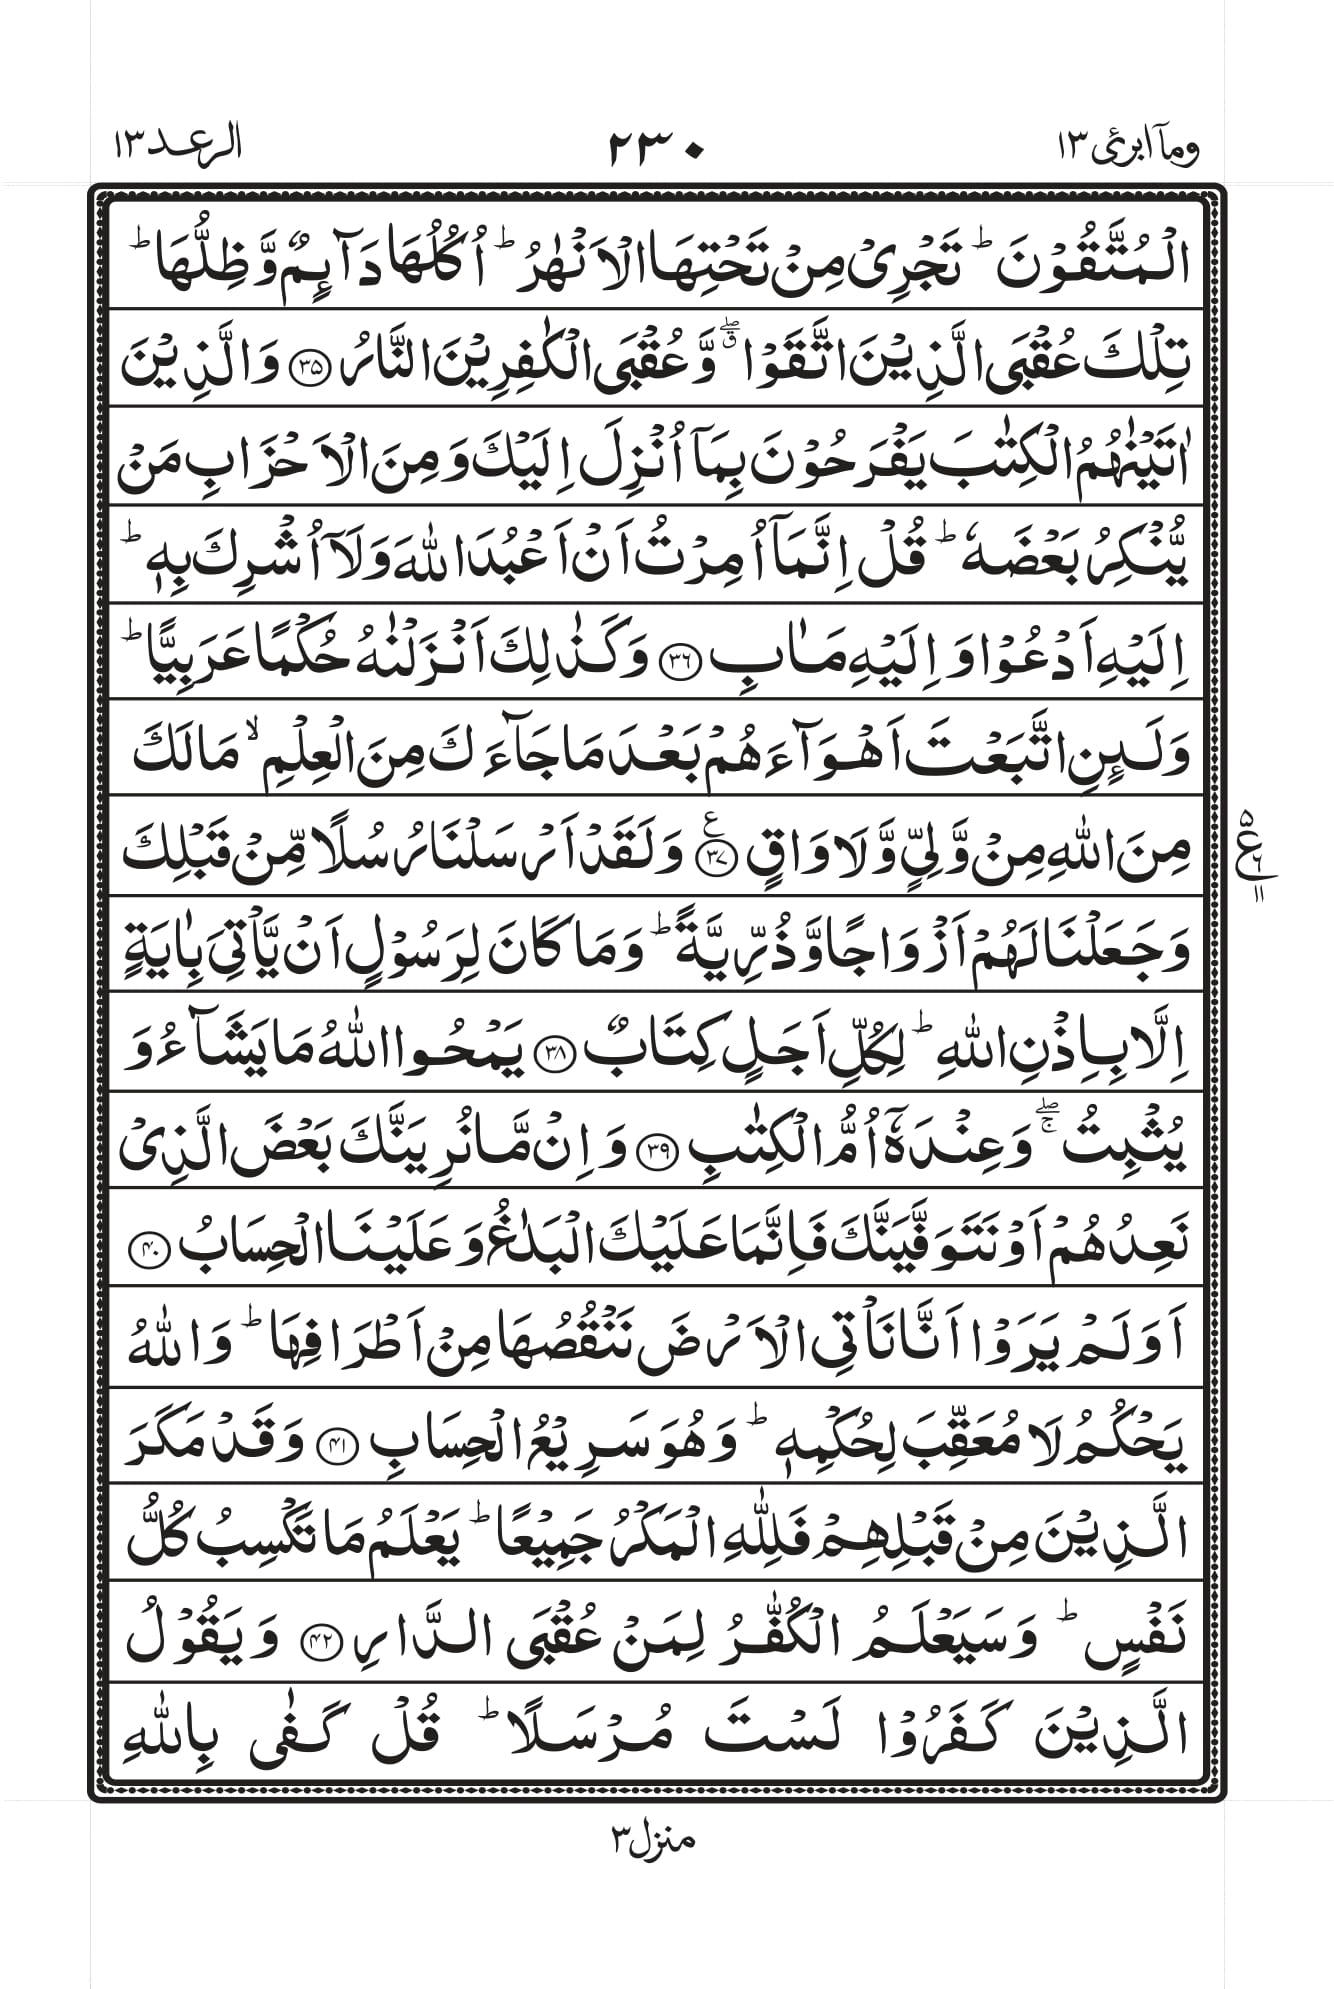 ومآ ابرئ ١٣ ٢٣٠ الرعد ١٣
الۡمُتَّقُوۡنَ ؕ تَجۡرِىۡ مِنۡ تَحۡتِهَا الۡاَنۡهٰرُ ؕ اُكُلُهَا دَآٮِٕمٌ وَّظِلُّهَا ؕ
تِلۡكَ عُقۡبَى الَّذِيۡنَ اتَّقَوْا ۖ ق وَّعُقۡبَى الۡكٰفِرِيۡنَ النَّارُ ﴿۳۵﴾ وَالَّذِيۡنَ
اٰتَيۡنٰهُمُ الۡكِتٰبَ يَفۡرَحُوۡنَ بِمَاۤ اُنۡزِلَ اِلَيۡكَ وَمِنَ الۡاَحۡزَابِ مَنۡ
يُّنۡكِرُ بَعۡضَهٗ ؕ قُلۡ اِنَّمَاۤ اُمِرۡتُ اَنۡ اَعۡبُدَ اللّٰهَ وَلَاۤ اُشۡرِكَ بِهٖ ؕ
اِلَيۡهِ اَدۡعُوۡا وَاِلَيۡهِ مَاٰبِ ﴿۳۶﴾ وَكَذٰلِكَ اَنۡزَلۡنٰهُ حُكۡمًا عَرَبِيًّا ؕ
وَلَٮِٕنِ اتَّبَعۡتَ اَهۡوَآءَهُمۡ بَعۡدَ مَا جَآءَكَ مِنَ الۡعِلۡمِ ۙ مَا لَكَ
مِنَ اللّٰهِ مِنۡ وَّلِىٍّ وَّلَا وَاقٍ ﴿۳۷﴾ ع وَلَقَدۡ اَرۡسَلۡنَا رُسُلًا مِّنۡ قَبۡلِكَ
٥ ع ٦ ١١
وَ جَعَلۡنَا لَهُمۡ اَزۡوَاجًا وَّذُرِّيَّةً ؕ وَمَا كَانَ لِرَسُوۡلٍ اَنۡ يَّاۡتِىَ بِاٰيَةٍ
اِلَّا بِاِذۡنِ اللّٰهِ ؕ لِكُلِّ اَجَلٍ كِتَابٌ ﴿۳۸﴾ يَمۡحُوا اللّٰهُ مَا يَشَآءُ وَ
يُثۡبِتُ ۖ ج وَعِنۡدَهٗۤ اُمُّ الۡكِتٰبِ ﴿۳۹﴾ وَاِنۡ مَّا نُرِيَنَّكَ بَعۡضَ الَّذِىۡ
نَعِدُهُمۡ اَوۡ نَتَوَفَّيَنَّكَ فَاِنَّمَا عَلَيۡكَ الۡبَلٰغُ وَعَلَيۡنَا الۡحِسَابُ ﴿۴۰﴾
اَوَلَمۡ يَرَوۡا اَنَّا نَاۡتِى الۡاَرۡضَ نَنۡقُصُهَا مِنۡ اَطۡرَافِهَا ؕ وَاللّٰهُ
يَحۡكُمُ لَا مُعَقِّبَ لِحُكۡمِهٖ ؕ وَهُوَ سَرِيۡعُ الۡحِسَابِ ﴿۴۱﴾ وَقَدۡ مَكَرَ
الَّذِيۡنَ مِنۡ قَبۡلِهِمۡ فَلِلّٰهِ الۡمَكۡرُ جَمِيۡعًا ؕ يَعۡلَمُ مَا تَكۡسِبُ كُلُّ
نَفۡسٍ ؕ وَسَيَعۡلَمُ الۡكُفّٰرُ لِمَنۡ عُقۡبَى الدَّارِ ﴿۴۲﴾ وَيَقُوۡلُ
الَّذِيۡنَ كَفَرُوۡا لَسۡتَ مُرۡسَلًا ؕ قُلۡ كَفٰى بِاللّٰهِ
منزل ٣